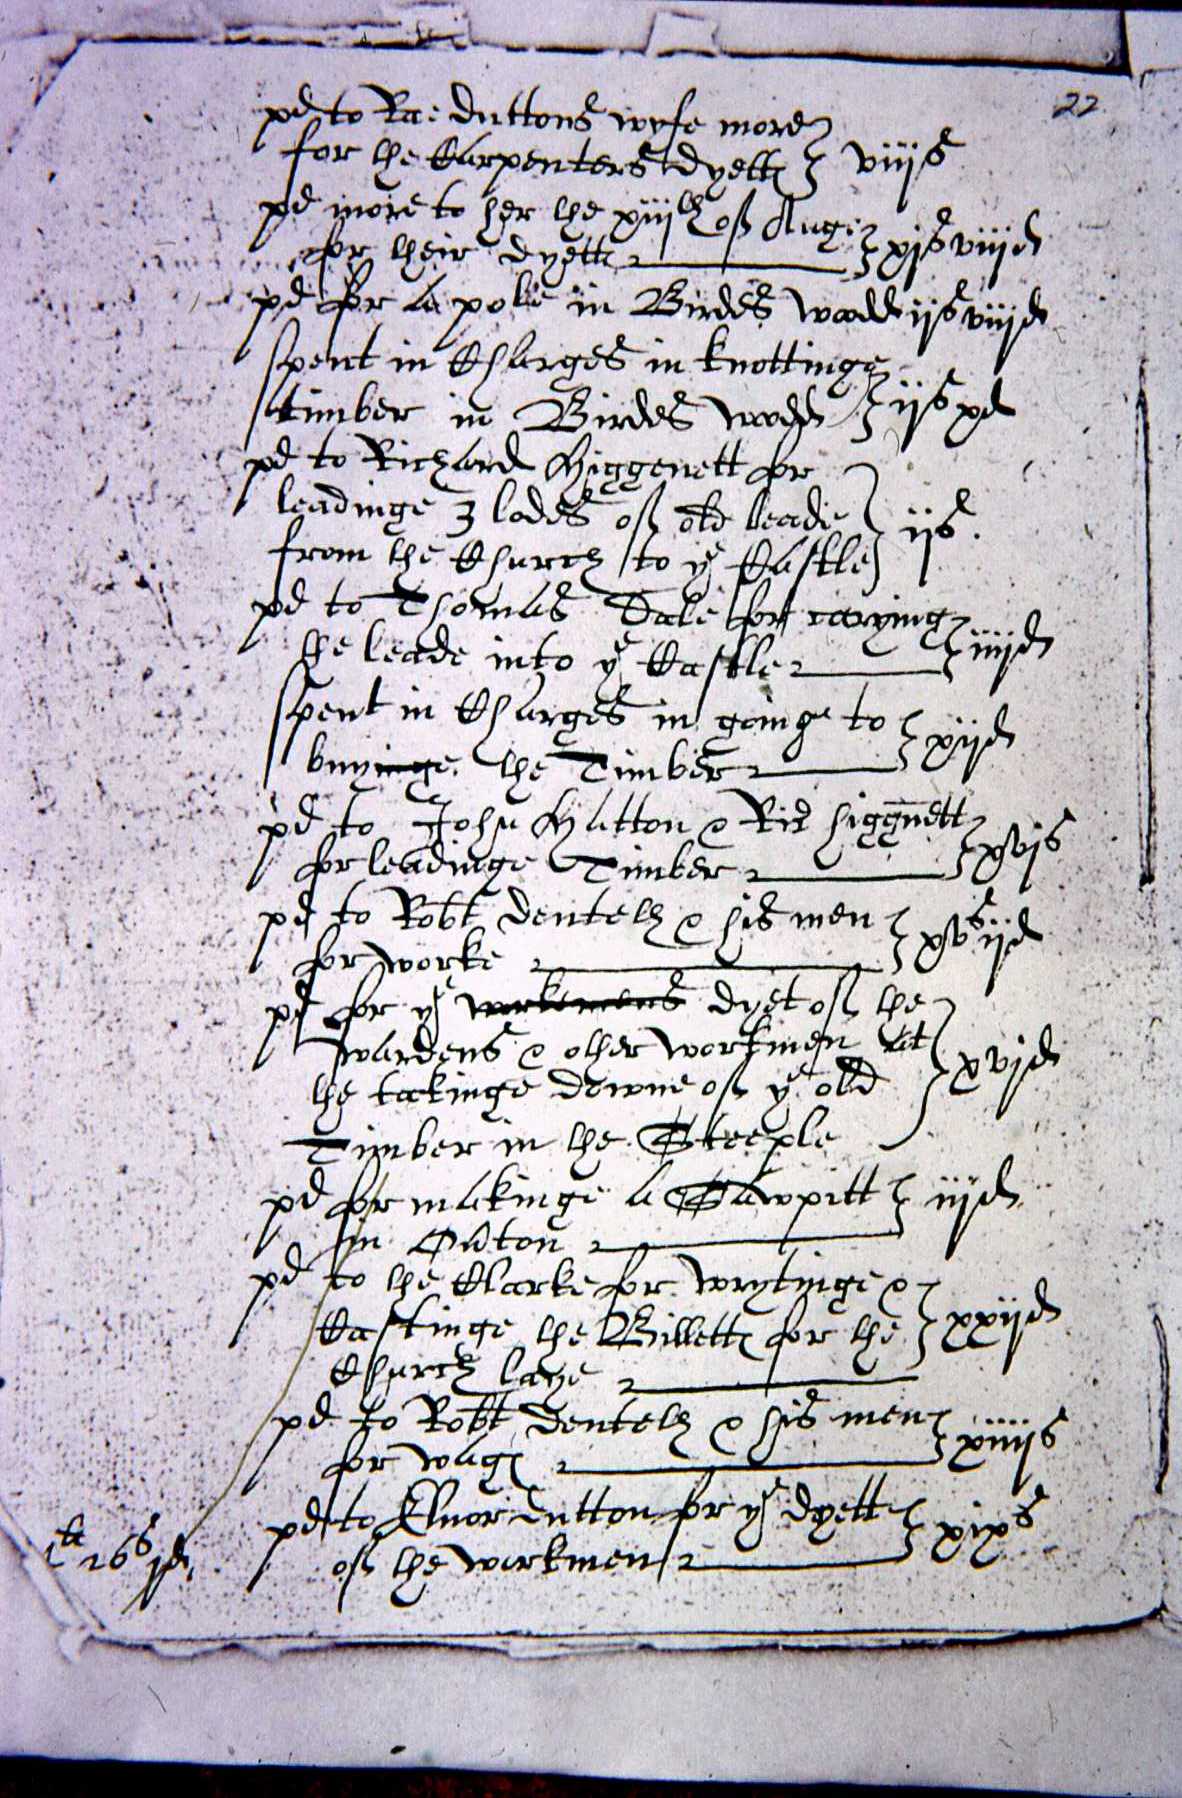 22
pd to Rae duttons wyfe more
for the Carpenters dyett viijs
pd more to her the xiijth of Aug:
for their dyett xjs viijd
pd for a pole in Birdes wood ijs viijd
spent in Charges in knottinge
timber in Birdes wood ijs xd
pd to Richard Higgenett for
leadinge 3 lodes of old leade
from the Church to ye Castle ijs.
pd to Thomas Dale for carying
the leade into ye Castle iiijd
spent in Charges in going to
buyinge the Timber xijd
pd to John Hatton & Ric higgnett
for leadinge Timber xvjs
pd to Robt dentelh & his men
for worke xvs ijd
pd for ye workemens dyet of the
wardens & other workmen at
the takinge downe of ye old
Timber in the Steeple xvjd
pd for makinge a Sawpitt
in Eaton iijd
pd to the Clarke for wrytinge &
Castinge the Billetts for the
Church laye xxijd
pd to Robt dentelh & his men
for wages xiiijs
pd to Elnor dutton for ye dyett
of the workmen xixs
16s 1d